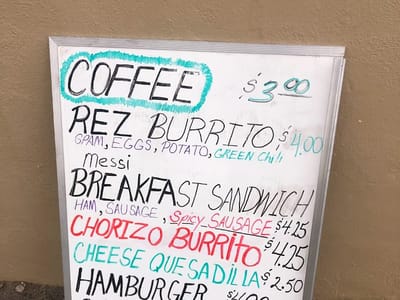 COFFEE $3.00
REZ BURRITO $4.00
SPAM, EGGS, POTATO, GREEN Chili
messi
BREAKFAST SANDWICH
HAM, SAUSAGE, Spicy SAUSAGE $4.25
CHORIZO BURRITO $4.25
CHEESE QUESADILLA $2.50
HAMBURGER